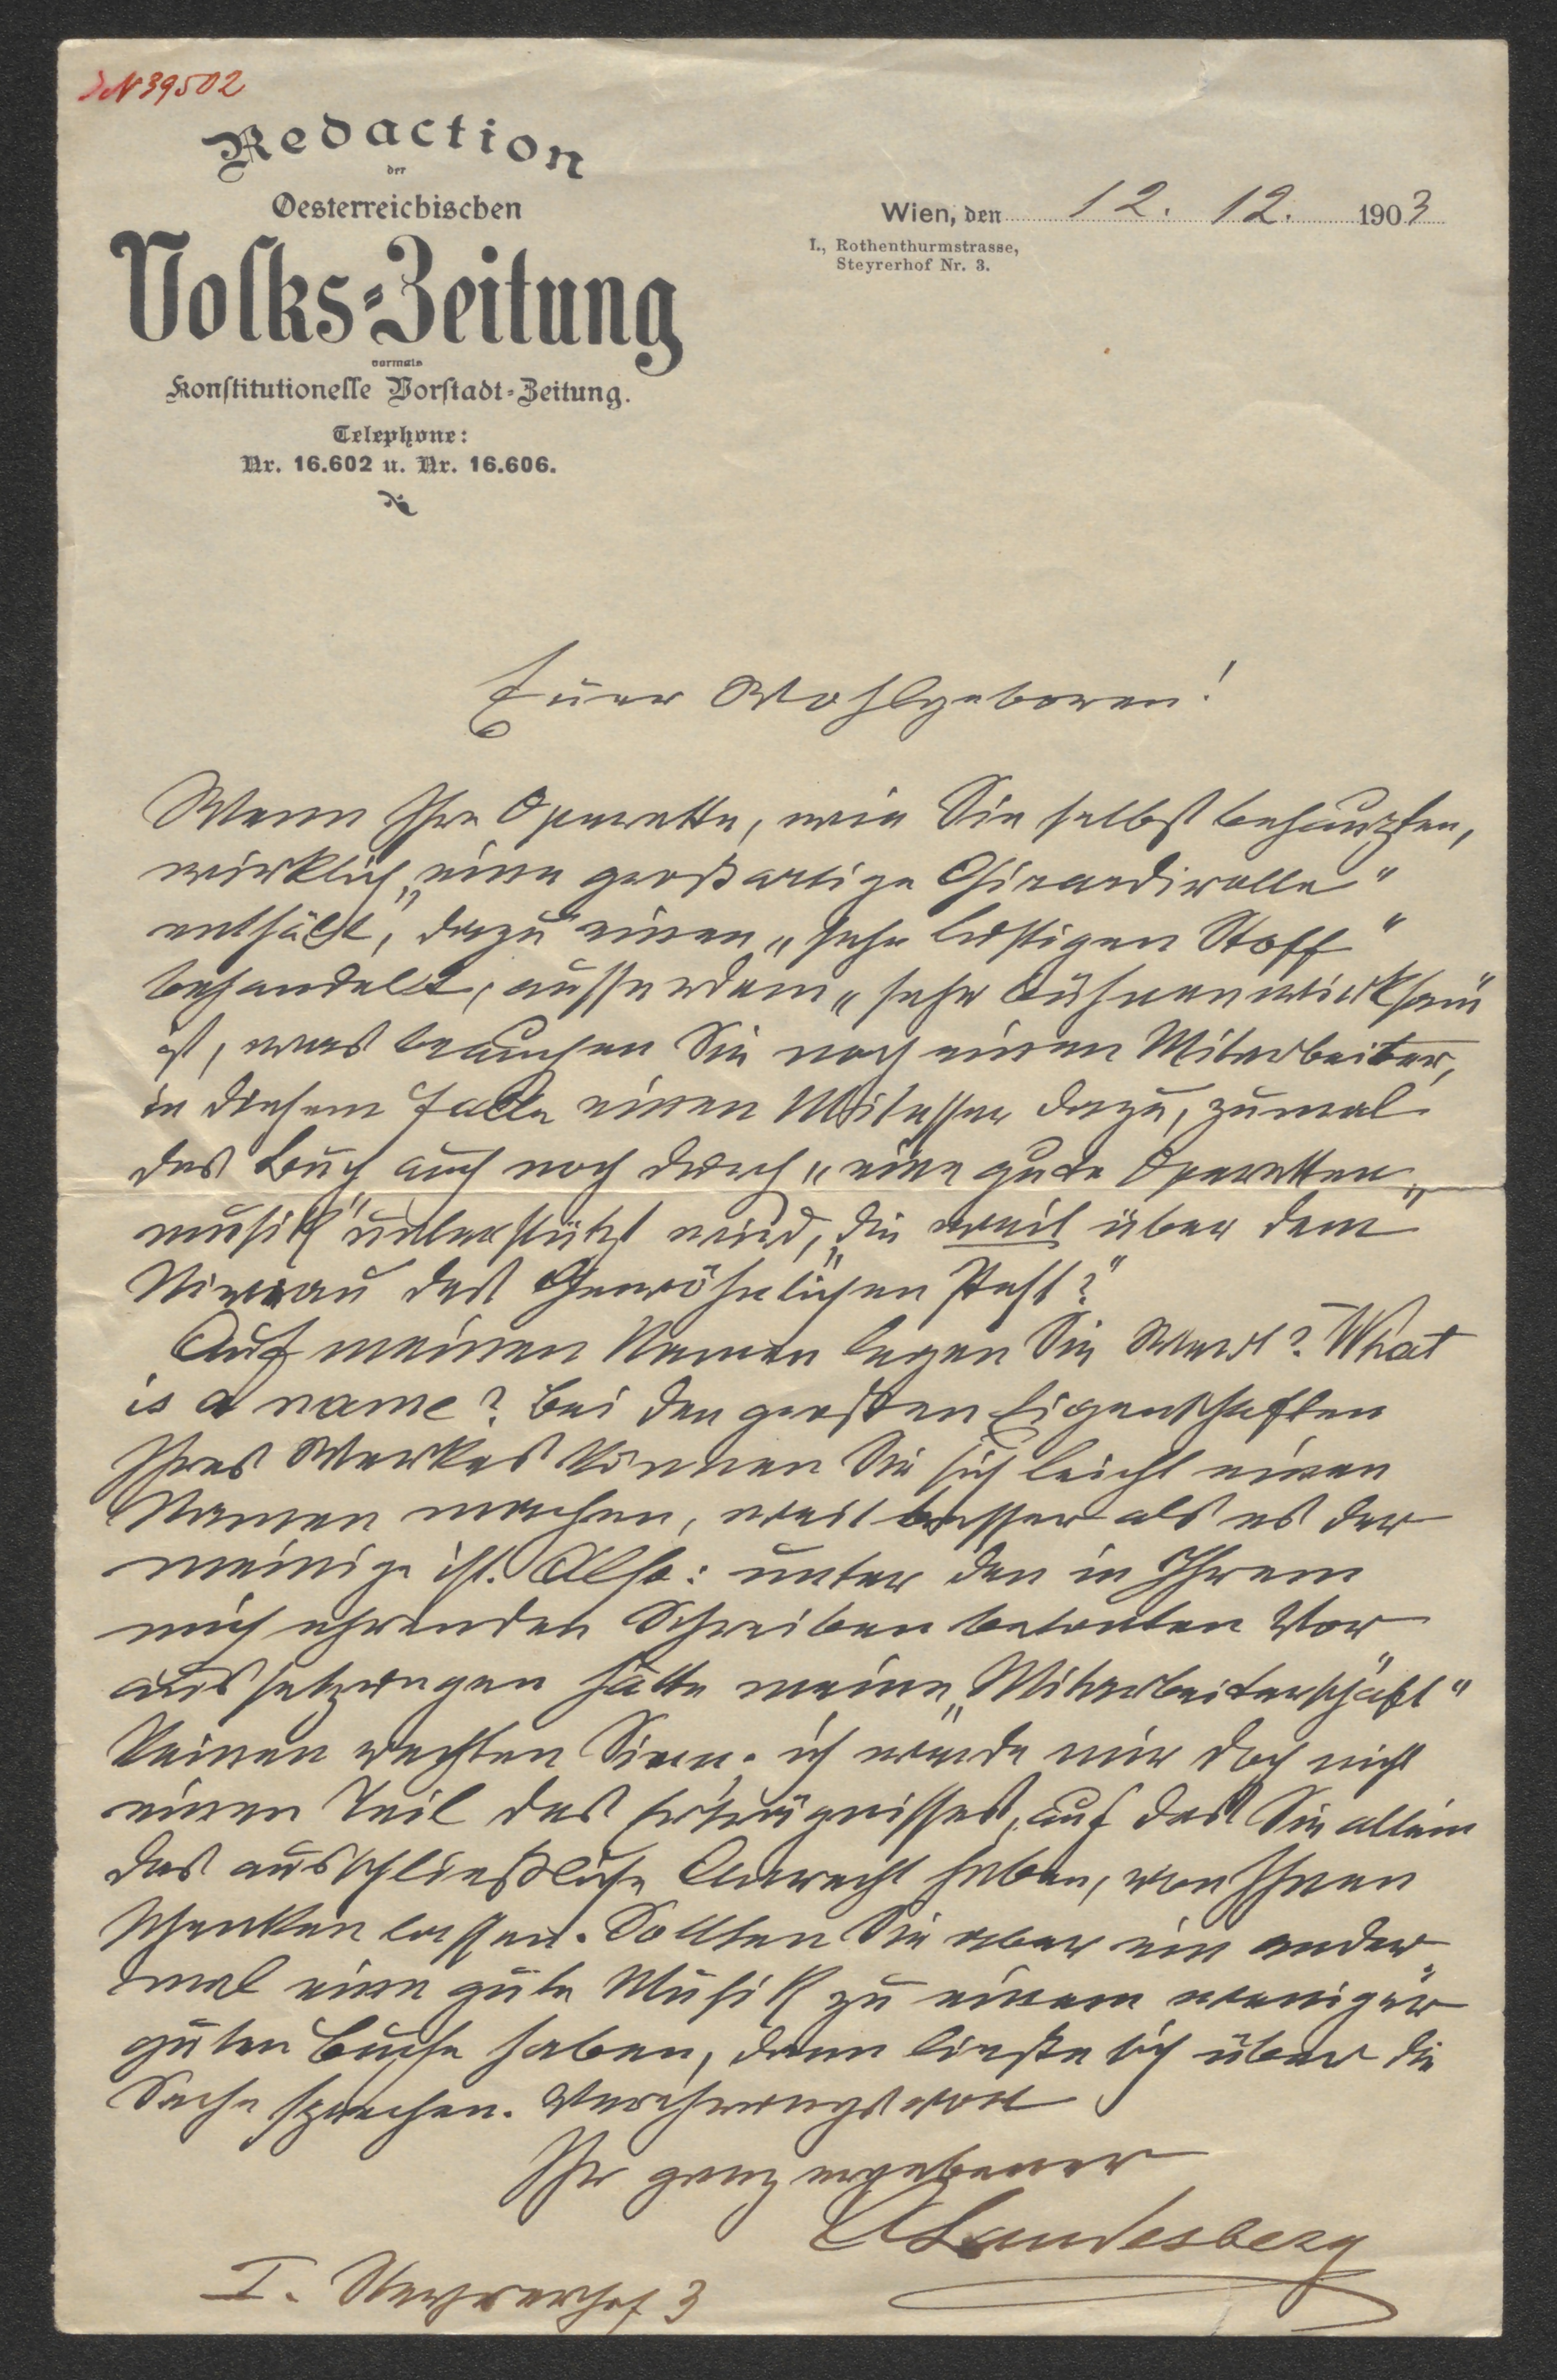 JN 39502
Redaction
der
Oesterreichischen
Volks-Zeitung
vormals
Konstitutionelle Vorstadt-Zeitung.
Telephone:
Nr. 16.602 u. Nr. 16.606.
Wien, den 12. 12. 1903
I., Rothenthurmstrasse,
Steyrerhof Nr. 3.
Euer Wohlgeboren!
Wenn Ihre Operette, wie Sie selbst behaupten,
wirklich „eine großartige Girardirolle“
enthält, dazu einen „sehr lustigen Stoff“
behandelt, ausserdem „sehr bühnenwirksam“
ist, was brauchen Sie noch einen Mitarbeiter,
in diesem Falle einen Mitesser dazu, zumal
das Buch auch noch durch „eine gute Operetten-
musik“ unterstützt wird, „die weit über dem
Niveau des Gewöhnlichen steht?“
Auf meinen Namen legen Sie Wert? What
is a name? Bei den großen Eigenschaften
Ihres Werkes können Sie sich leicht einen
Namen machen, weit besser als es der
meinige ist. Also: unter den in Ihrem
mich ehrenden Schreiben betonten Vor-
aussetzungen hätte meine „Mitarbeiterschaft“
keinen rechten Sinn. ich werde mir doch nicht
einen Teil des Erträgnisses, auf das Sie allein
das ausschließliche Anrecht haben, von Ihnen
schenken lassen. Sollten Sie aber ein ander-
mal eine gute Musik zu einem weniger
guten Buche haben, dann ließe sich über die
Sache sprechen. Verehrungsvoll
Ihr ganz ergebener
A Landesberg
I. Steyrerhof 3